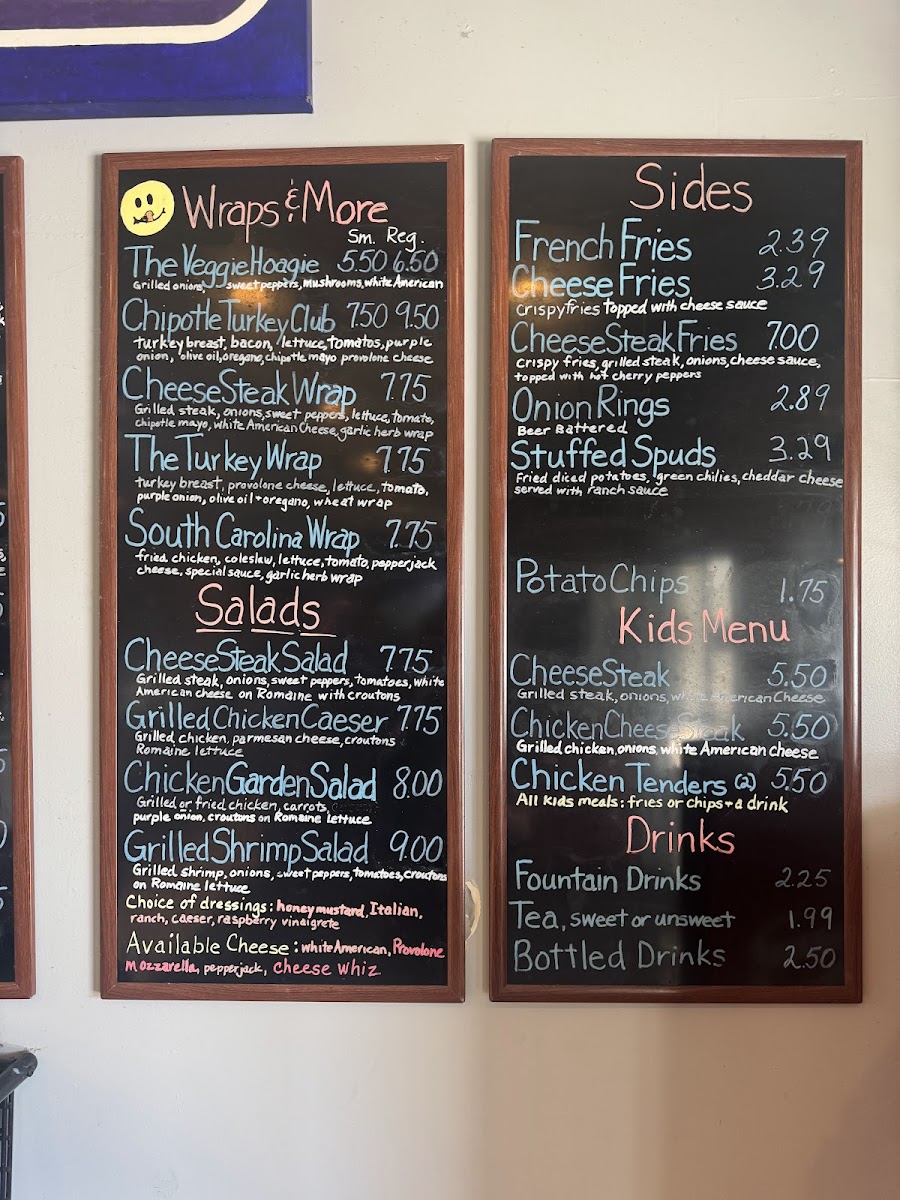 Wraps & More
Sm. Reg.
The Veggie Hoagie 5.50 6.50
Grilled onions, sweet peppers, mushrooms, white American
Chipotle Turkey Club 7.50 9.50
turkey breast, bacon, lettuce, tomatos, purple
onion, olive oil, oregano, chipotle mayo provolone cheese
Cheese Steak Wrap 7.75
Grilled steak, onions, sweet peppers, lettuce, tomato,
chipotle mayo, white American Cheese, garlic herb wrap
The Turkey Wrap 7.75
turkey breast, provolone cheese, lettuce, tomato,
purple onion, olive oil + oregano, wheat wrap
South Carolina Wrap 7.75
fried chicken, coleslaw, lettuce, tomato, pepperjack
cheese, special sauce, garlic herb wrap
Salads
Cheese Steak Salad 7.75
Grilled steak, onions, sweet peppers, tomatoes, white
American cheese on Romaine with croutons
Grilled Chicken Caeser 7.75
Grilled chicken, parmesan cheese, croutons
Romaine lettuce
Chicken Garden Salad 8.00
Grilled or fried chicken, carrots,
purple onion, croutons on Romaine lettuce
Grilled Shrimp Salad 9.00
Grilled shrimp, onions, sweet peppers, tomatoes, croutons
on Romaine lettuce
Choice of dressings: honey mustard, Italian,
ranch, caeser, raspberry vinaigrete
Available Cheese: white American, Provolone
Mozzarella, pepperjack, cheese whiz
Sides
French Fries 2.39
Cheese Fries 3.29
crispy fries topped with cheese sauce
Cheese Steak Fries 7.00
crispy fries, grilled steak, onions, cheese sauce,
topped with hot cherry peppers
Onion Rings 2.89
Beer Battered
Stuffed Spuds 3.29
Fried diced potatoes, green chilies, cheddar cheese
served with ranch sauce
Potato Chips 1.75
Kids Menu
Cheese Steak 5.50
Grilled steak, onions, white American Cheese
Chicken Cheese Steak 5.50
Grilled chicken, onions, white American cheese
Chicken Tenders (2) 5.50
All kids meals: fries or chips + a drink
Drinks
Fountain Drinks 2.25
Tea, sweet or unsweet 1.99
Bottled Drinks 2.50